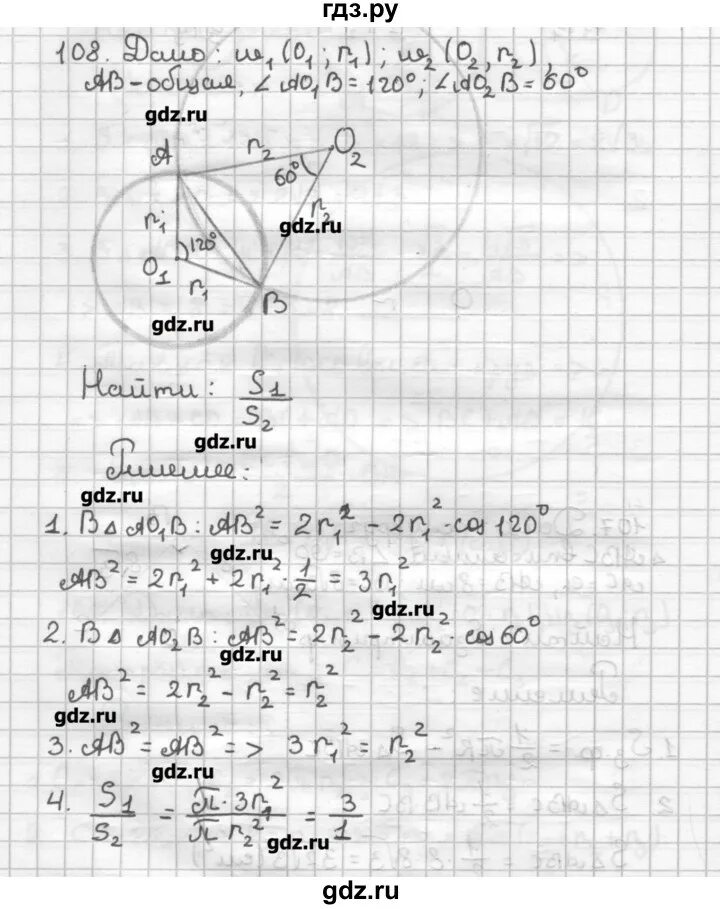 гдз.ру
108. Дано: w₁ (O₁; r₁); w₂ (O₂, r₂),
AB – общая, ∠AO₁B = 120°; ∠AO₂B = 60°
gdz.ru
A
r₂
O₂
60°
r₁
r₂
gdz.ru
120°
O₁
r₁
B
gdz.ru
Найти: S₁/S₂
gdz.ru
Решение:
gdz.ru
1. В △ AO₁B : AB² = 2r₁² – 2r₁² · cos 120°
gdz.ru
AB² = 2r₁² + 2r₁² · 1/2 = 3r₁²
gdz.ru
2. В △ AO₂B : AB² = 2r₂² – 2r₂² · cos 60°
gdz.ru
AB² = 2r₂² – r₂² = r₂²
gdz.ru
3. AB² = AB² => 3r₁² = r₂²
gdz.ru
4. S₁/S₂ = π · 3r₁²/π r₂² = 3/1
gdz.ru
gdz.ru